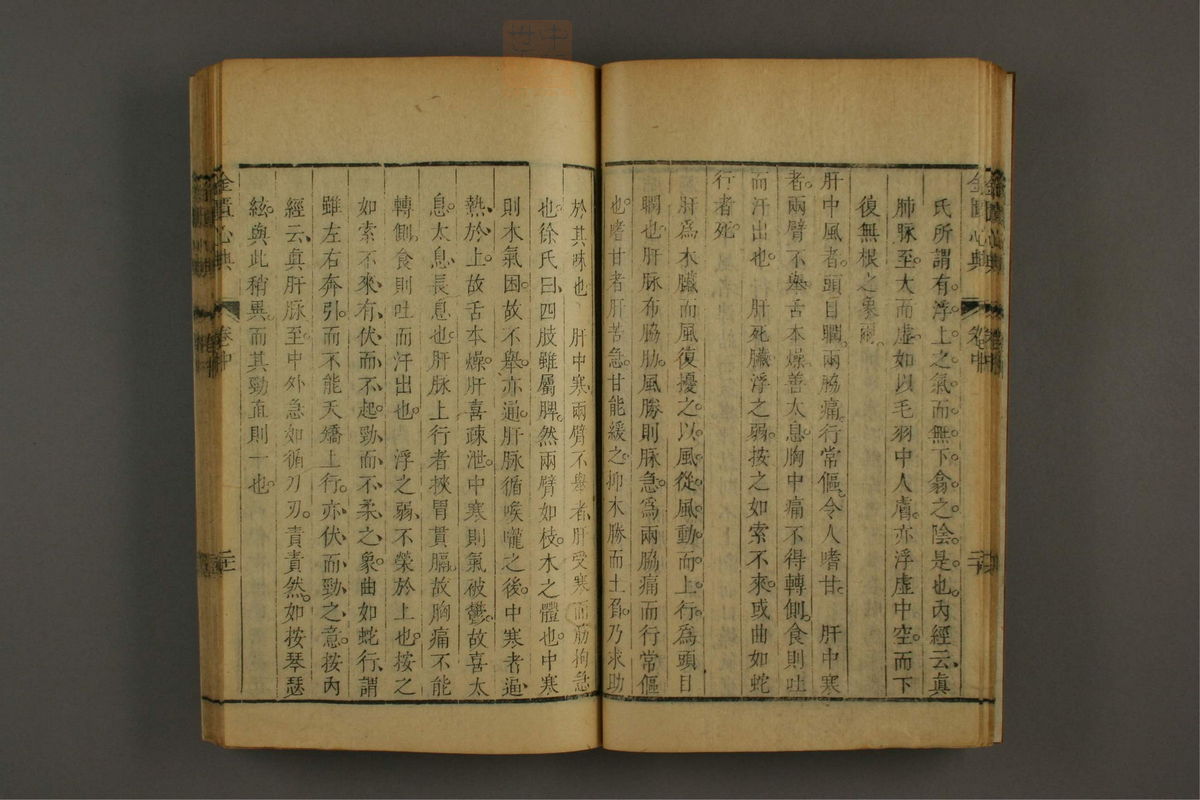 氏所謂有浮上之氣而無下翕之陰是也內經云真
肺脉至大而虛如以毛羽中人膚亦浮虛中空而下
復無根之象爾
肝中風者頭目瞤兩脇痛行常傴令人嗜甘　肝中寒
者兩臂不舉舌本燥善太息胸中痛不得轉側食則吐
而汗出也　肝死臟浮之弱按之如索不來或曲如蛇
行者死
肝爲木臟而風復擾之以風從風動而上行爲頭目
瞤也肝脉布脇肋風勝則脉急爲兩脇痛而行常傴
也嗜甘者肝苦急甘能緩之抑木勝而土負乃求助
於其味也　肝中寒兩臂不舉者肝受寒而筋拘急
也徐氏曰四肢雖屬脾然兩臂如枝木之體也中寒
則木氣困故不舉亦通肝脉循喉嚨之後中寒者逼
熱於上故舌本燥肝喜疎泄中寒則氣被鬱故喜太
息太息長息也肝脉上行者挾胃貫膈故胸痛不能
轉側食則吐而汗出也　浮之弱不榮於上也按之
如索不來有伏而不起勁而不柔之象曲如蛇行謂
雖左右奔引而不能夭矯上行亦伏而勁之意按內
經云真肝脉至中外急如循刀刃責責然如按琴瑟
絃與此稍異而其勁直則一也
金匱心典
卷中
二十
金匱心典
卷中
二十一